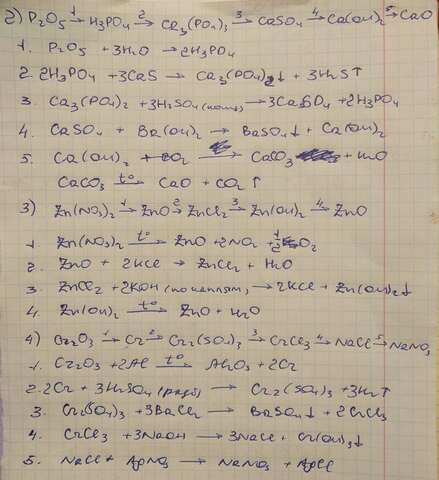 2) P₂O₅ →¹ H₃PO₄ →² Ca₃(PO₄)₃ →³ CaSO₄ →⁴ Ca(OH)₂ →⁵ CaO
1. P₂O₅ + 3H₂O → 2H₃PO₄
2. 2H₃PO₄ + 3CaS → Ca₃(PO₄)₂↓ + 3H₂S↑
3. Ca₃(PO₄)₂ + 3H₂SO₄ (конц) → 3CaSO₄ + 2H₃PO₄
4. CaSO₄ + Ba(OH)₂ → BaSO₄↓ + Ca(OH)₂
5. Ca(OH)₂ + CO₂ → CaCO₃ + H₂O
CaCO₃ →t° CaO + CO₂↑
3) Zn(NO₃)₂ →¹ ZnO →² ZnCl₂ →³ Zn(OH)₂ →⁴ ZnO
1. Zn(NO₃)₂ →t° ZnO + 2NO₂ + ½O₂
2. ZnO + 2HCl → ZnCl₂ + H₂O
3. ZnCl₂ + 2KOH (по каплям) → 2KCl + Zn(OH)₂↓
4. Zn(OH)₂ →t° ZnO + H₂O
4) Cr₂O₃ →¹ Cr →² Cr₂(SO₄)₃ →³ CrCl₃ →⁴ NaCl →⁵ NaNO₃
1. Cr₂O₃ + 2Al →t° Al₂O₃ + 2Cr
2. 2Cr + 3H₂SO₄ (разб) → Cr₂(SO₄)₃ + 3H₂↑
3. Cr₂(SO₄)₃ + 3BaCl₂ → BaSO₄↓ + 2CrCl₃
4. CrCl₃ + 3NaOH → 3NaCl + Cr(OH)₃↓
5. NaCl + AgNO₃ → NaNO₃ + AgCl